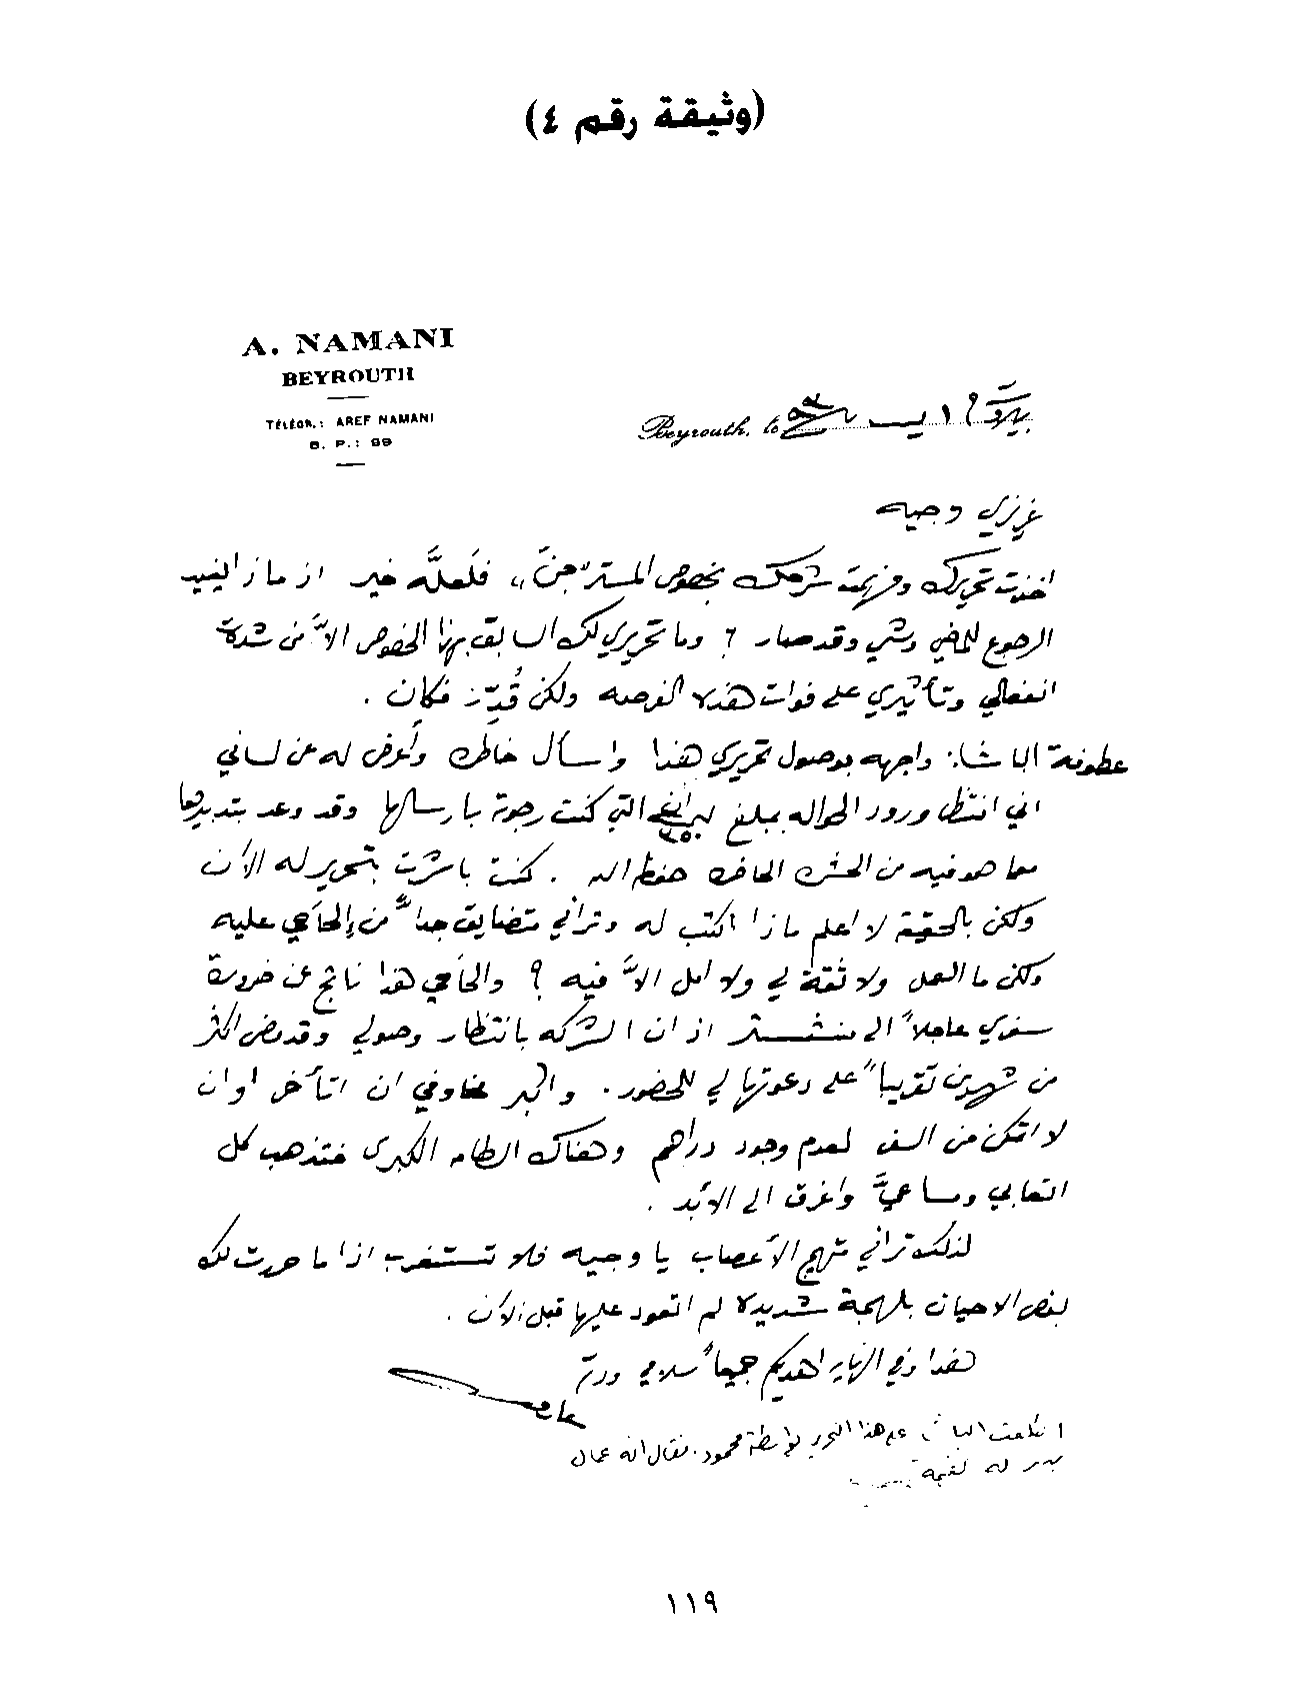 (وثيقة رقم ٤)
A. NAMANI
BEYROUTH
TÉLÉGR.: AREF NAMANI
B. P.: 99
Beyrouth, le
عزيزي وجيه
اخذت تحريرك وفهمت شرحك بخصوص المستر "جن" فلعلَّه خير اذ ماذا يفيد
الرجوع للماضي وشي وقد صار ؟ وما تحريري لك السابق بهذا الخصوص الاَّ من شدة
انفعالي وتأثيري على فوات هذه الفرصه ولكن قُدِّر فكان .
عطوفة الباشا: واجهه بوصول تحريري هذا واسأل خاطره وأعرض له عن لساني
اني انتظر ورود الحواله بمبلغ التي كنت رجوته بارسالها وقد وعد بتدبيرها
مما هو فيه من الحاضره حفظه الله . كنت باشرت بتحرير له الأن
ولكن بالحقيقة لا اعلم ماذا اكتب له وتراني متضايق جداً من إلحاحي عليه
ولكن ما العمل ولا ثقة لي ولا امل الاَّ فيه ؟ والحاحي هذا ناتج عن ضرورة
سفري عاجلاً الى منشستر اذ ان الشركه بانتظار وصولي وقد مضى اكثر
من شهرين تقريباً على دعوتها لي للحضور . واكبر مخاوفي ان اتأخر او ان
لا اتمكن من السفر لعدم وجود دراهم وهناك الطامه الكبرى فتذهب كل
اتعابي ومساعيَّ واغرق الى الأبد .
لذلك تراني متهيج الأعصاب يا وجيه فلا تستغرب اذا ما حررت لك
بعض الاحيان بلهجة شديدة لم اتعود عليها قبل الأن .
هذا وفي النهايه اهديكم جميعاً سلامي ودمتم
عارف
اطلعت الباشا على هذا التحرير بواسطة محمود. فقال انه عمال
يدبر له
١١٩